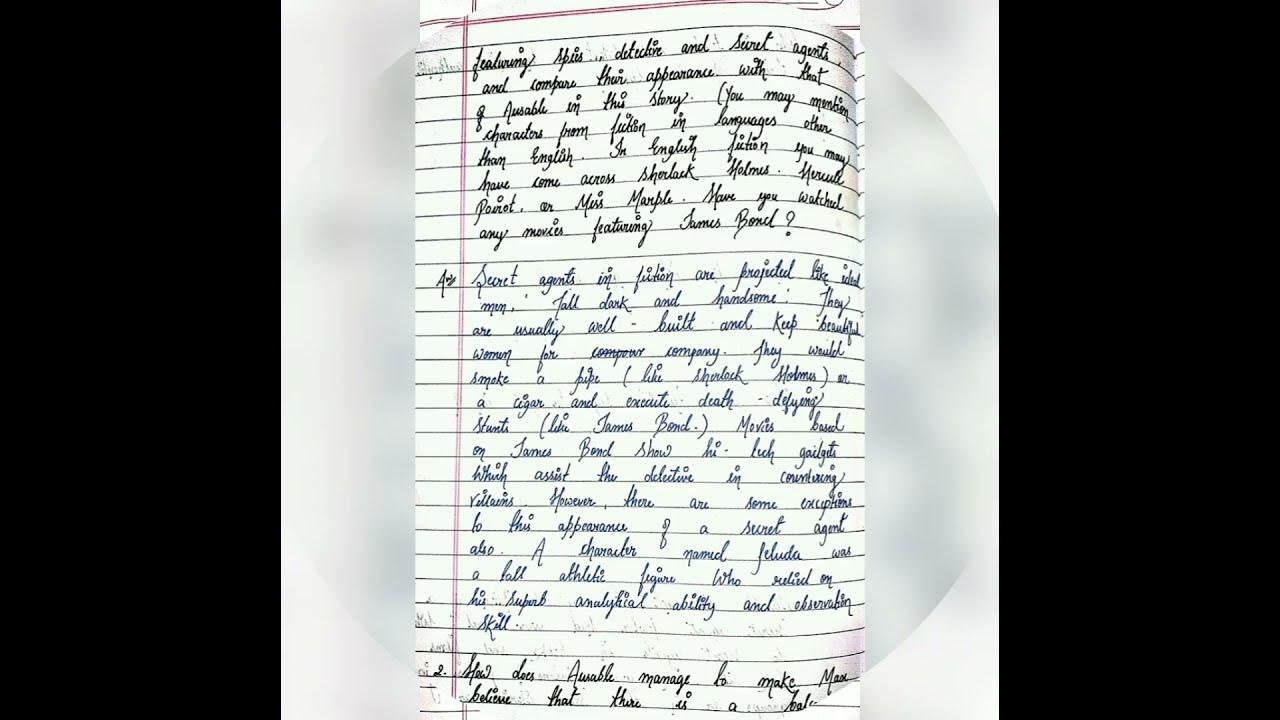 featuring spies, detective and secret agents,
and compare their appearance with that
of Ausable in this story. (You may mention
characters from fiction in languages other
than English. In English fiction you may
have come across Sherlock Holmes. Hercule
Poirot, or Miss Marple. Have you watched
any movies featuring James Bond?
Ans Secret agents in fiction are projected like ideal
men, 'Tall dark and handsome'. They
are usually well-built and keep beautiful
women for company. They would
smoke a pipe (like Sherlock Holmes) or
a cigar and execute death-defying
stunts (like James Bond.) Movies based
on James Bond show hi-tech gadgets
which assist the detective in countering
villains. However, there are some exceptions
to this appearance of a secret agent
also. A character named Feluda was
a tall athletic figure who relied on
his superb analytical ability and observation
skill.
2. How does Ausable manage to make Max
believe that there is a bal-